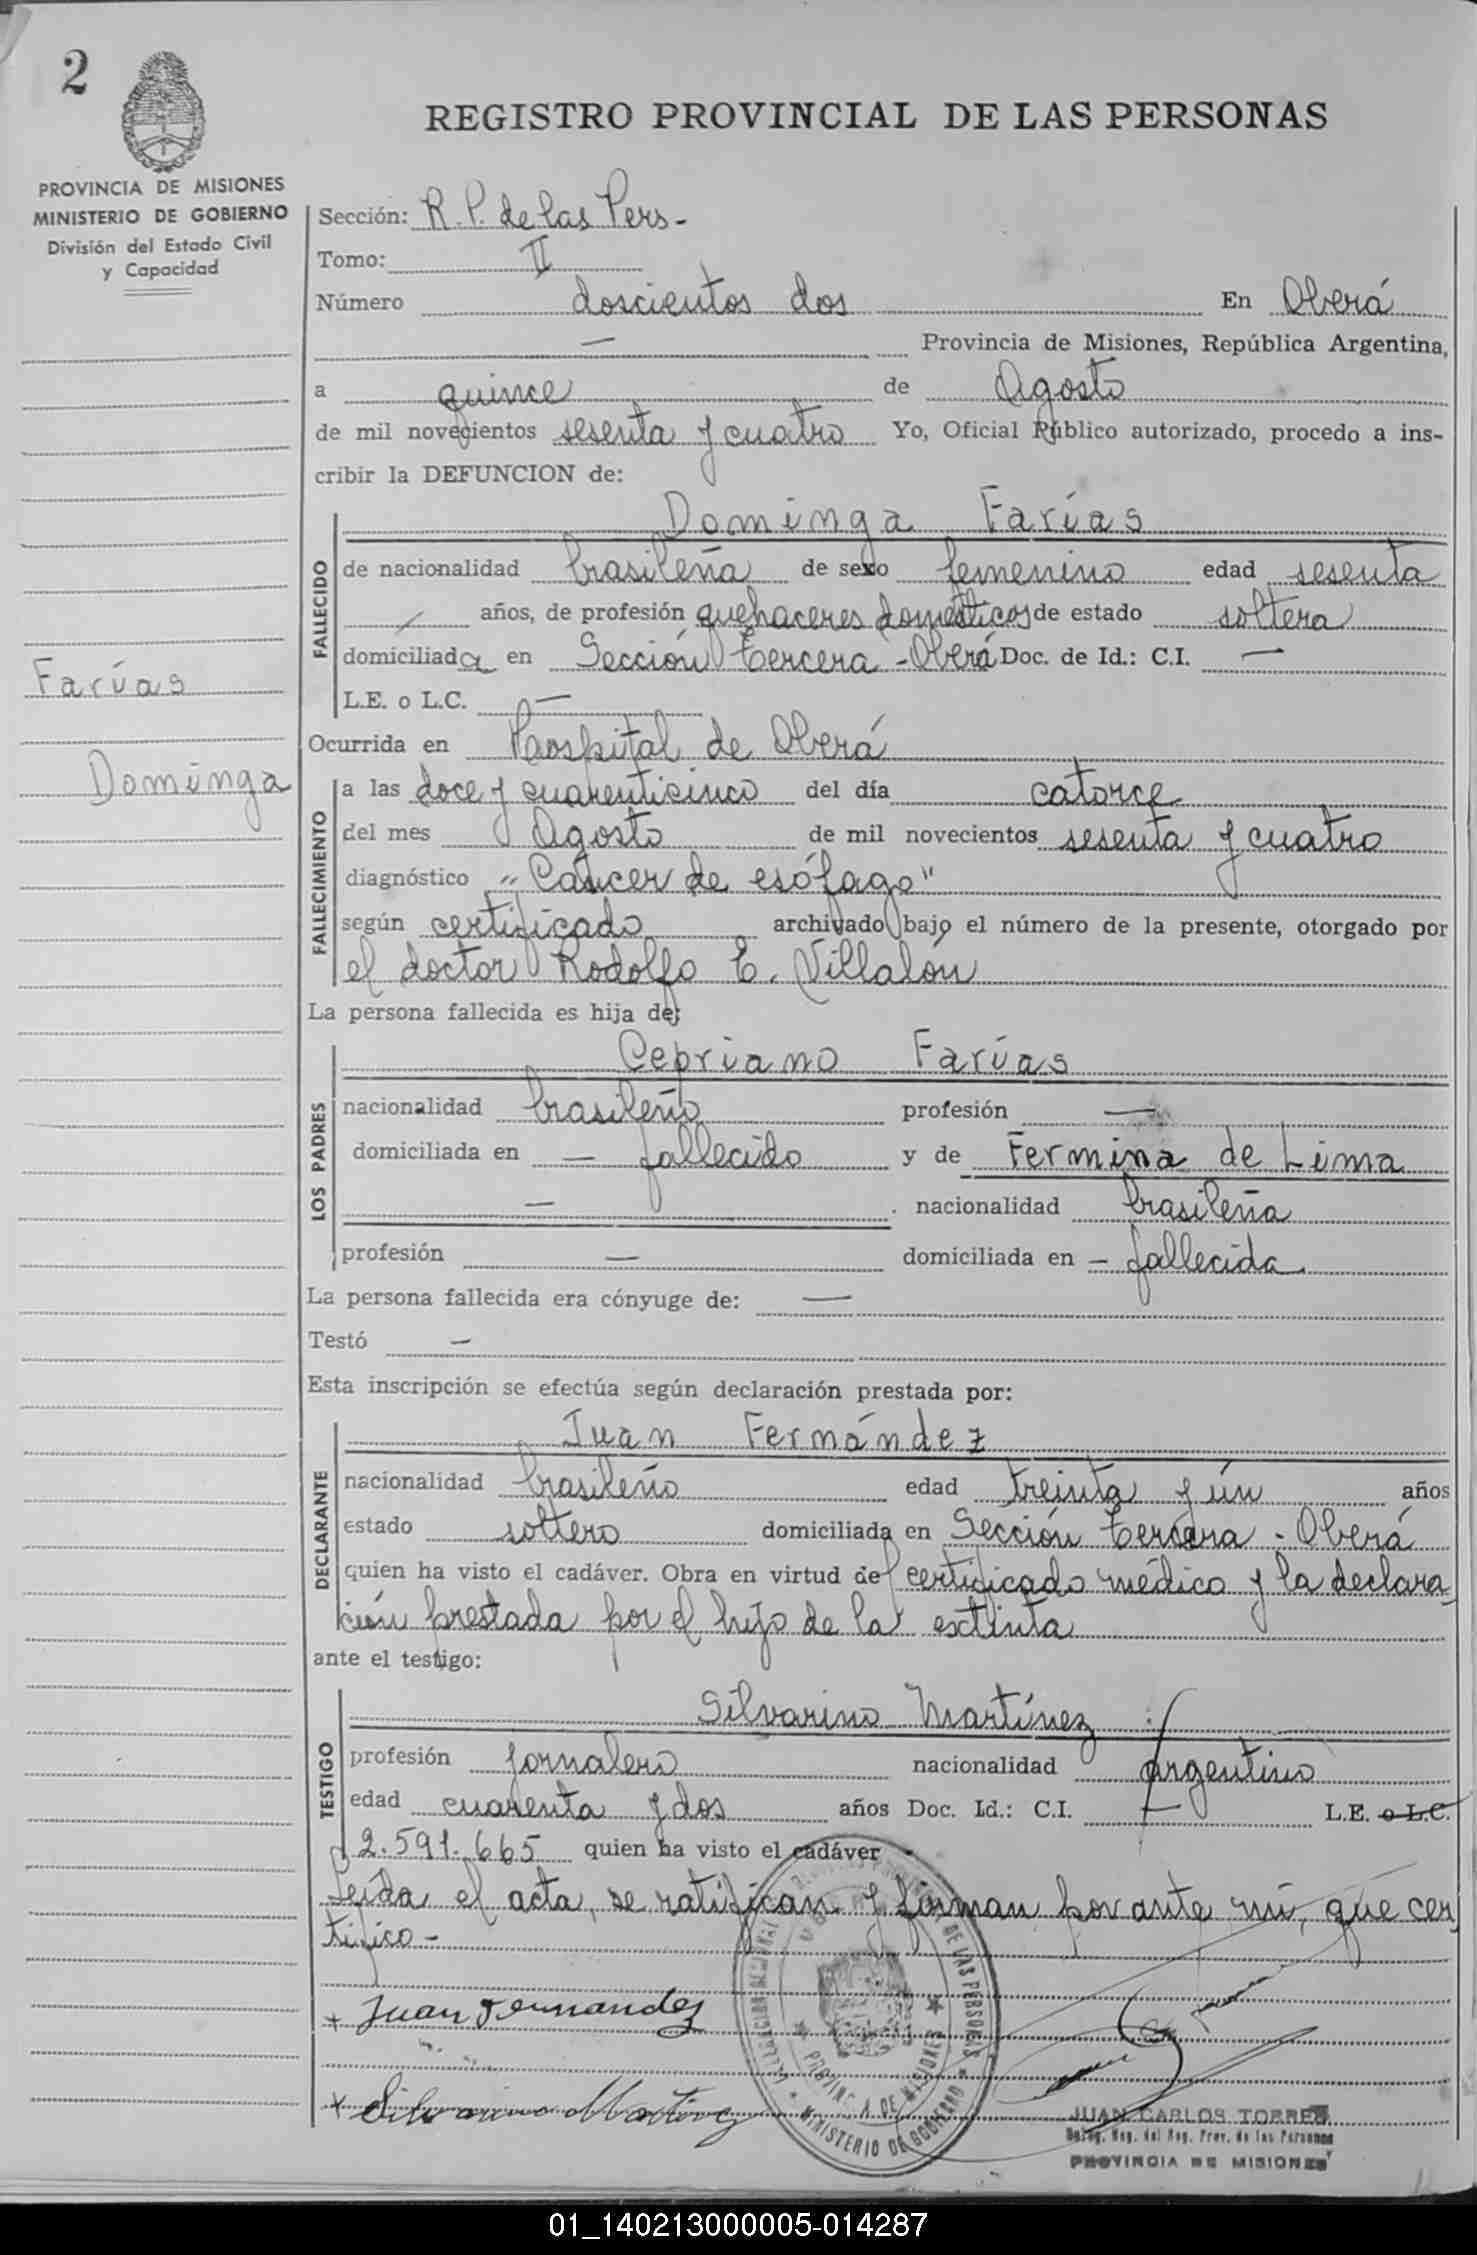 2
REGISTRO PROVINCIAL DE LAS PERSONAS
PROVINCIA DE MISIONES
MINISTERIO DE GOBIERNO
División del Estado Civil
y Capacidad
Sección: R.P. de las Pers-
Tomo: II
Número doscientos dos En Oberá
— Provincia de Misiones, República Argentina,
a quince de Agosto
de mil novecientos sesenta y cuatro Yo, Oficial Público autorizado, procedo a ins-
cribir la DEFUNCION de:
Dominga Farías
FALLECIDO
de nacionalidad brasileña de sexo femenino edad sesenta
/ años, de profesión quehaceres domésticos de estado soltera
domiciliada en Sección tercera - Oberá Doc. de Id.: C.I. —
L.E. o L.C. —
Farías
Dominga
Ocurrida en Hospital de Oberá
FALLECIMIENTO
a las doce y cuarenticinco del día catorce
del mes Agosto de mil novecientos sesenta y cuatro
diagnóstico "Cáncer de esófago"
según certificado archivado bajo el número de la presente, otorgado por
el doctor Rodolfo E. Villalon
La persona fallecida es hija de:
LOS PADRES
Cepriano Farías
nacionalidad brasileño profesión —
domiciliada en — fallecido y de Fermina de Lima
— . nacionalidad brasileña
profesión — domiciliada en — fallecida
La persona fallecida era cónyuge de: —
Testó —
Esta inscripción se efectúa según declaración prestada por:
DECLARANTE
Juan Fernández
nacionalidad brasileño edad treinta y ún años
estado soltero domiciliada en Sección tercera - Oberá
quien ha visto el cadáver. Obra en virtud del certificado médico y la declara
ción prestada por el hijo de la extinta
ante el testigo:
TESTIGO
Silvarino Martínez
profesión jornalero nacionalidad argentino
edad cuarenta y dos años Doc. Id.: C.I. — L.E. o L.C.
2.591.665 quien ha visto el cadáver
Leída el acta, se ratifican y firman por ante mí, que cer
tifico -
+ Juan Fernandez
+ Silvarino Martinez
DE LAS PERSONAS
PROVINCIA DE MISIONES
MINISTERIO DE GOBIERNO
JUAN CARLOS TORRES
Deleg. Reg. del Reg. Prov. de las Personas
PROVINCIA DE MISIONES
01_140213000005-014287